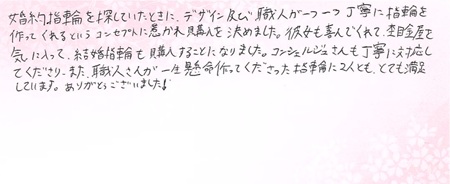 婚約指輪を探していたときに、デザイン及び職人が一つ一つ丁寧に指輪を
作ってくれるというコンセプトに惹かれ購入を決めました。彼女も喜んでくれて、杢目金屋を
気に入って、結婚指輪も購入することになりました。コンシェルジュさんも丁寧に対応し
てくださり、また、職人さんが一生懸命作ってくださった指輪に2人とも、とても満足
しています。ありがとうございました!